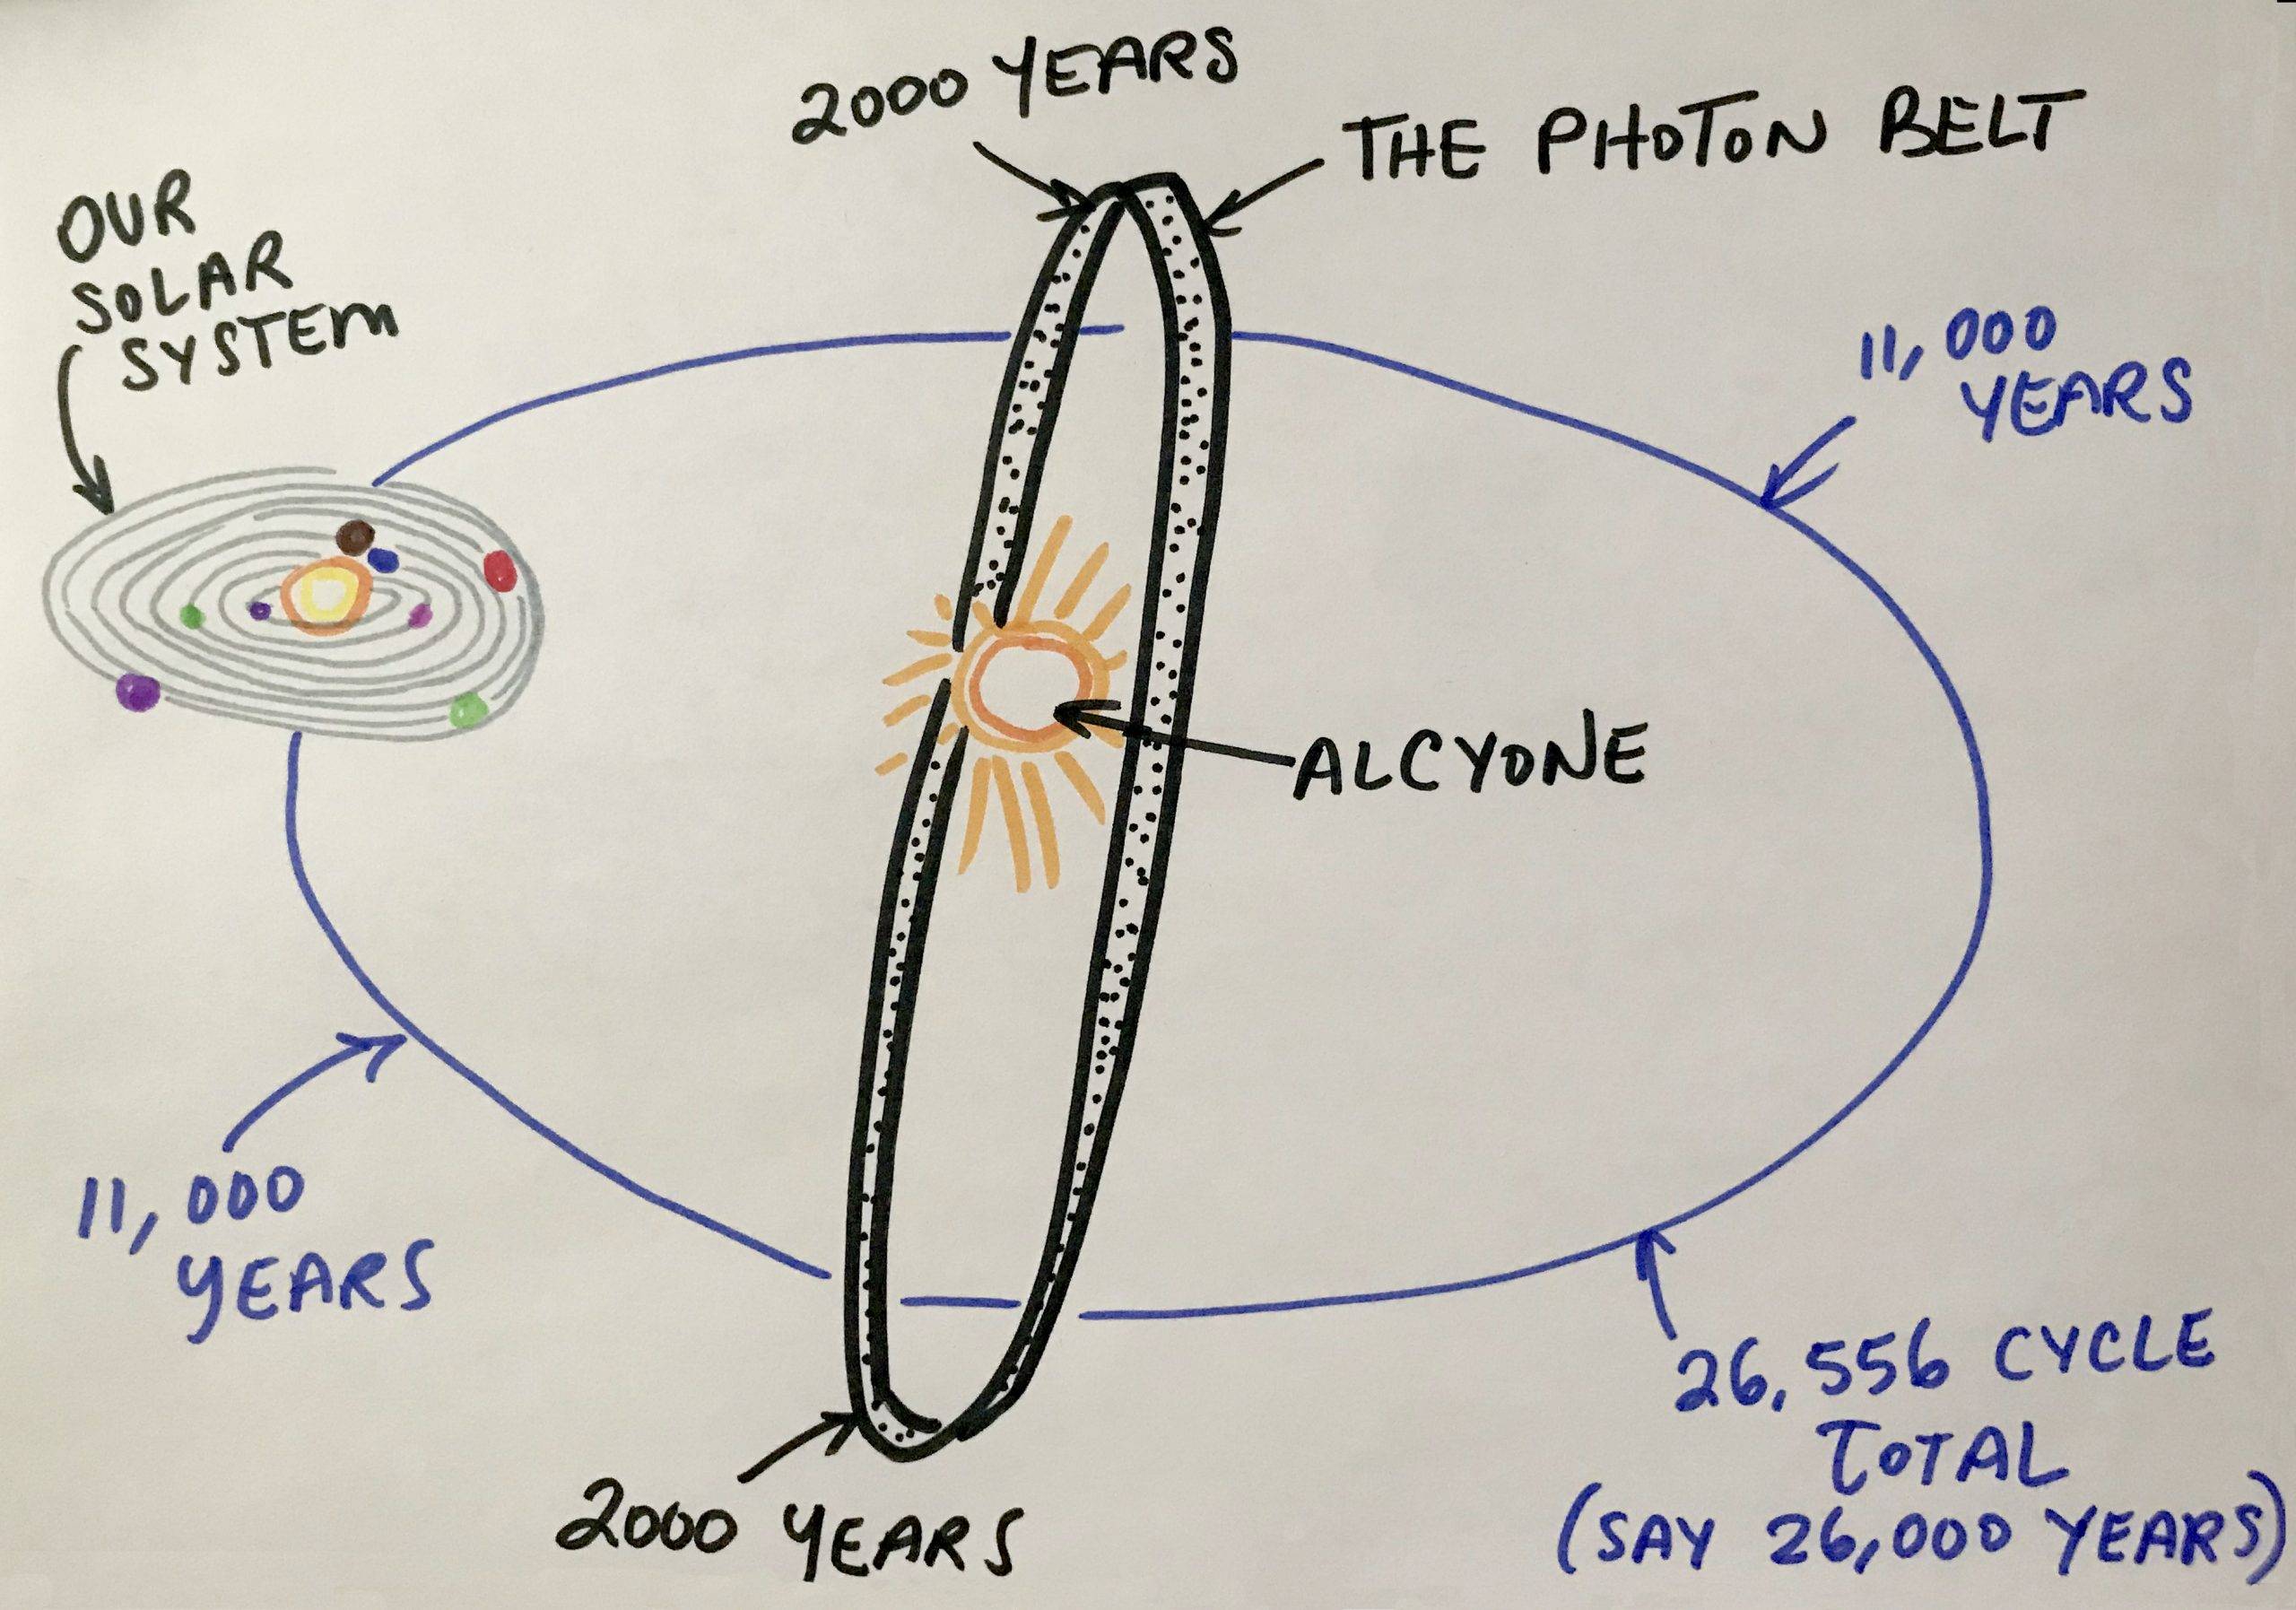 2000 YEARS
THE PHOTON BELT
OUR
SOLAR
SYSTEM
11,000
YEARS
ALCYONE
11,000
YEARS
26,556 CYCLE
TOTAL
(SAY 26,000 YEARS)
2000 YEARS